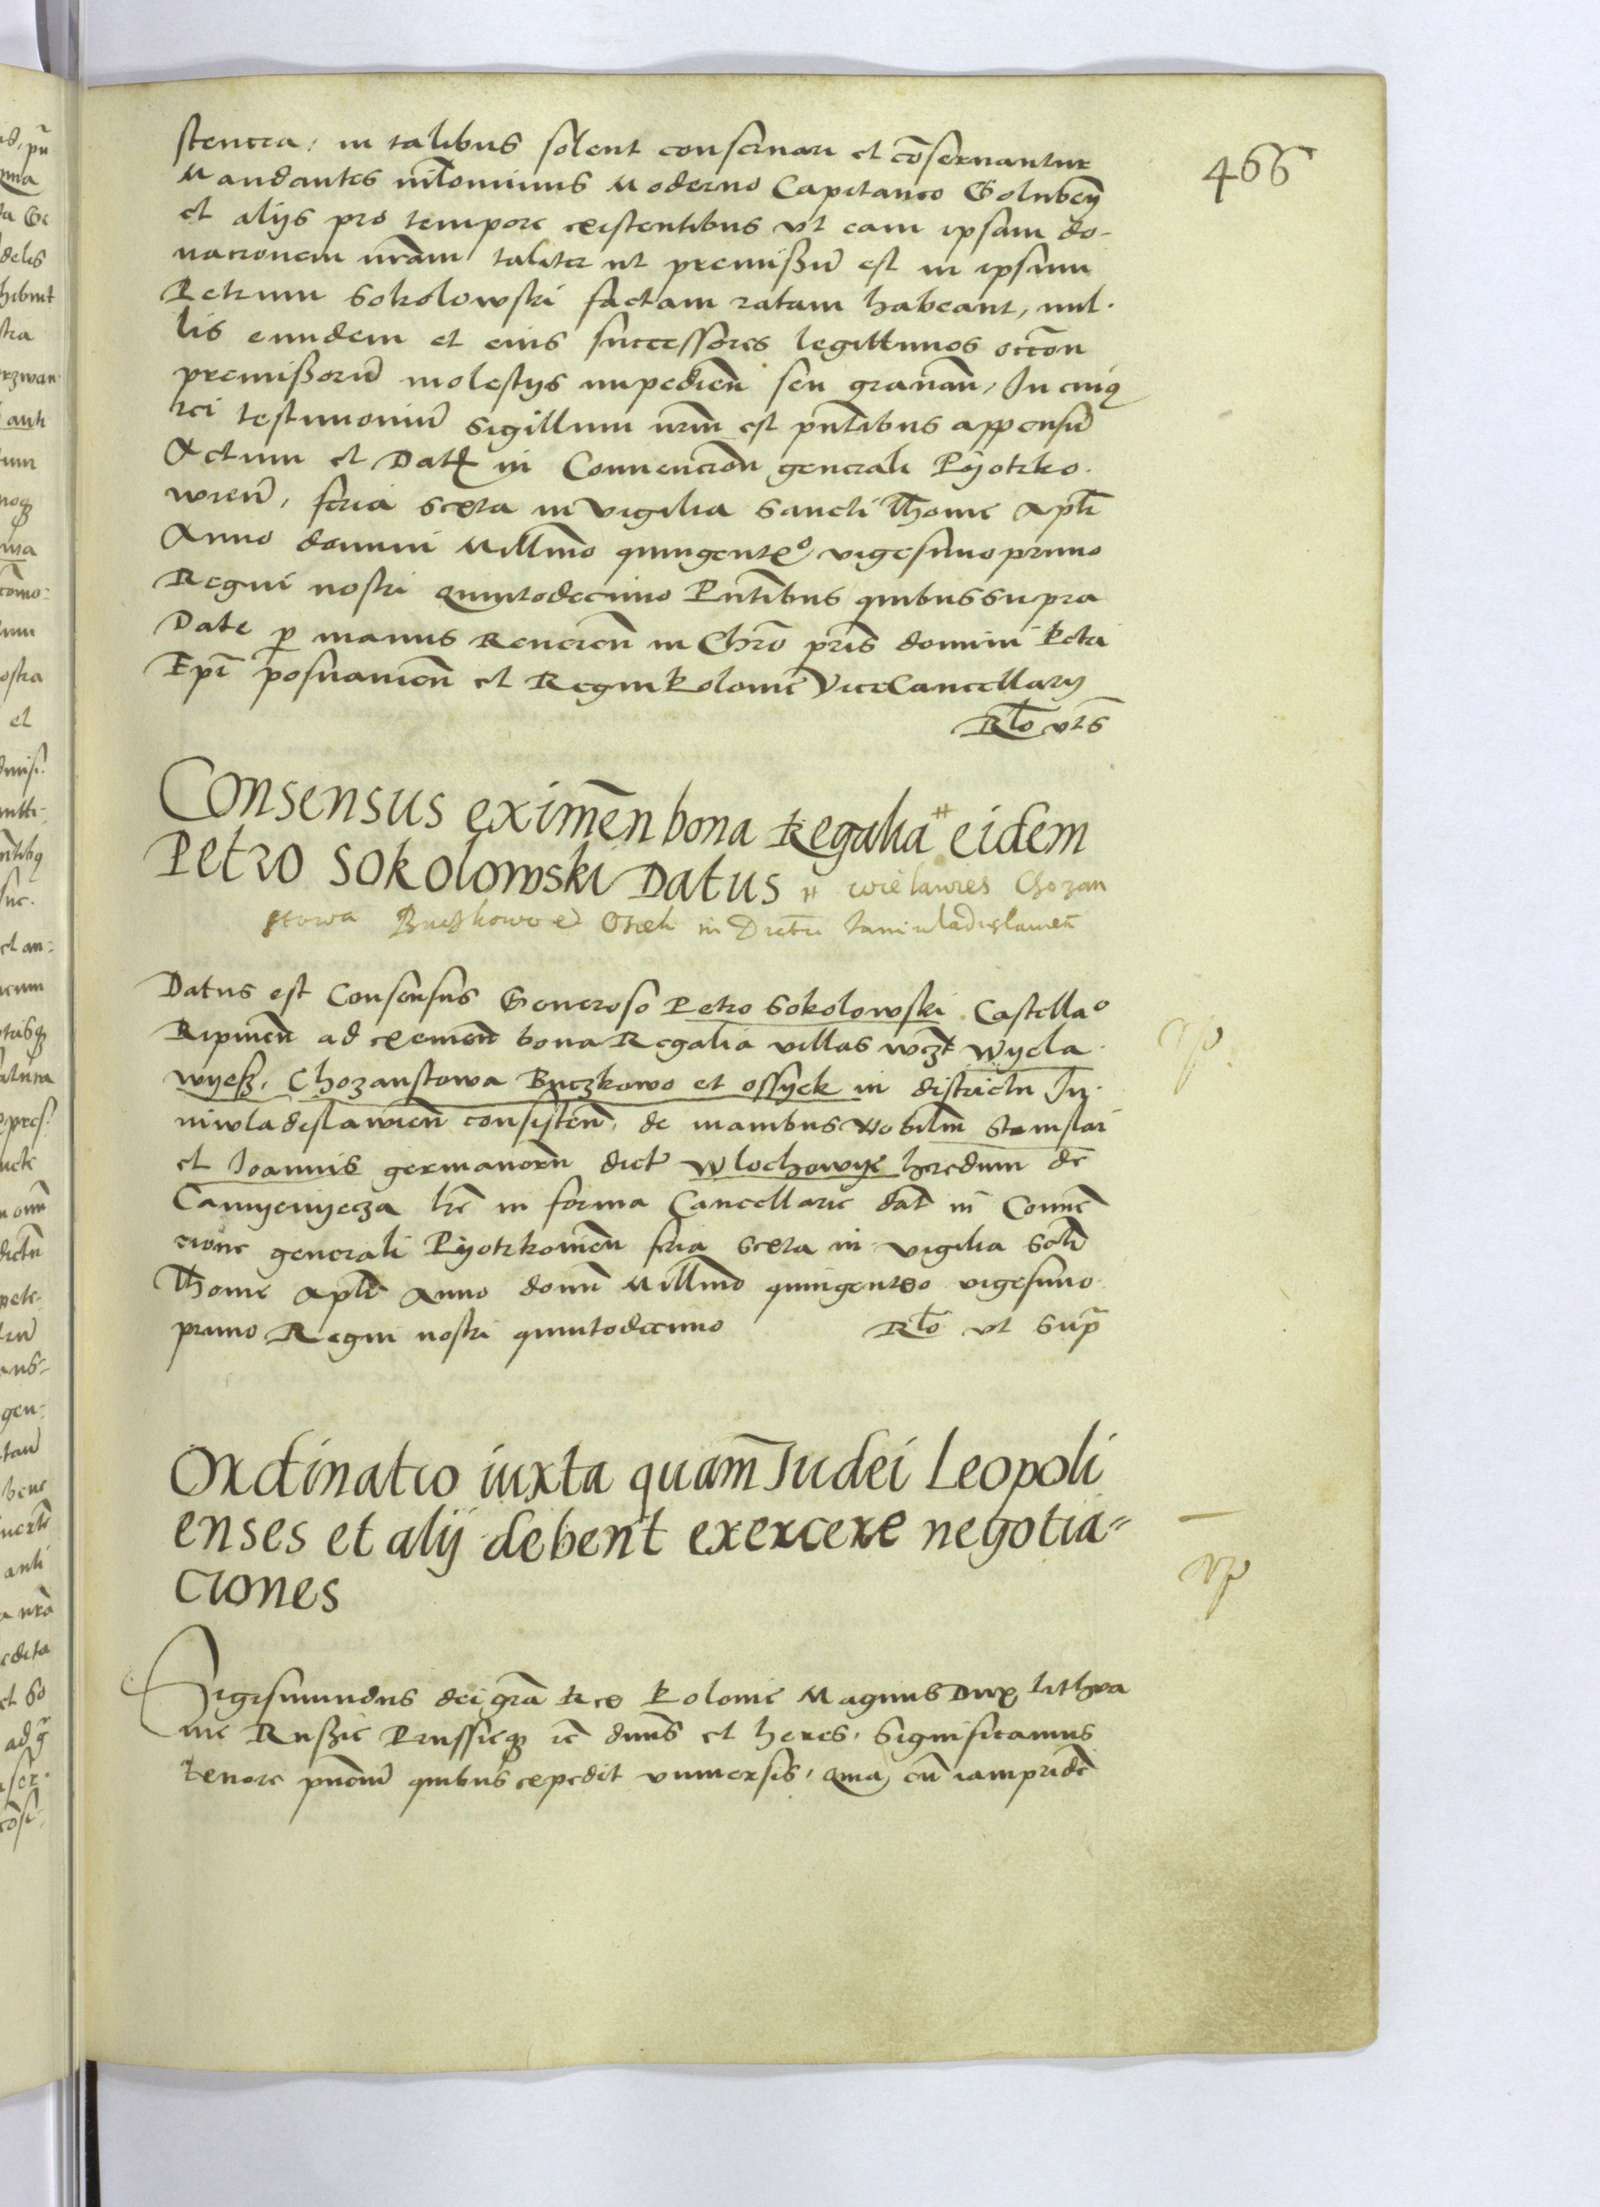 466
stencia, in talibus solent conservari et cōservantur
Mandantes nil̄ominus Moderno Capitaneo Golubēn̄
et alijs pro tempore existentibus vt eam ipsam do-
nacionem nrām taliter ut premissū est in ipsum
Petrum Sokolowski factam ratam habeant, nul-
lis eundem et eius successores legittimos occōn
premissorū molestijs impedien̄ seu gravan̄, In cuiq
rei testimoniū Sigillum nrm̄ est pn̄tibus appensū
Actum et Dat in Convencion̄ generali Pyotrko-
wien̄, feria sexta in vigilia Sancti Thome Apl̄i
Anno domini Millm̄o quingentē° vigesimo primo
Regni nostri quintodecimo Pn̄tibus quibus supra
Date p manus Reveren̄ in Chro pris domini Petri
Ep̄i posnanien̄ et Regni Polonie ViceCancellarij
Rl̄o vts
Consensus eximēn bona Regalia # eidem
Petro Sokolowski Datus # wielawies Chozan
stowa Buczkowo et Osiek in Districtu Juniwladislawien̄
Datus est Consensus Generoso Petro Sokolowski Castella°
Ripinen̄ ad eximen̄ bona Regalia villas vcz̄t Wyela-
wyesz, Chozanstowa Buczkowo et ossyek in districtu Ju-
niwladislawien̄ consisten̄, de manibus Nobilm̄ Stanislai
et Joannis germanorū dict Wlochowye heredum de
Camyenyecza lr̄e in forma Cancellarie dat̄ in Conven̄
cione generali Pyotrkowien̄ feria sexta in vigilia Scti
Thome Apl̄i Anno domī Millm̄o quingentēo vigesimo
primo Regni nostri quintodecimo Rl̄o vt Supr̄
Ordinatio iuxta quam̄ Iudei Leopoli
enses et alij debent exercere negotia=
ciones
Sigismundus dei grā Rex Polonie Magnus Dux Lithva
nie Russie Prussieq ic̄ dn̄us et heres, Significamus
tenore pn̄ciū quibus expedit vniversis, Quia cū iampridē